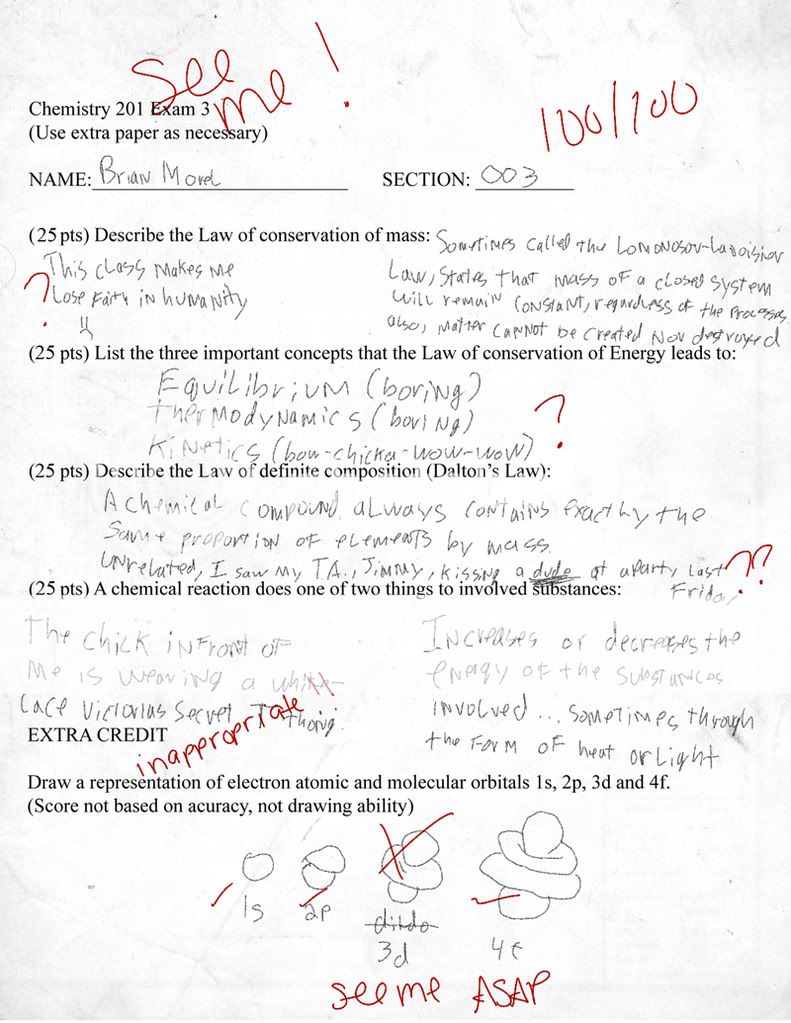 See
me !
Chemistry 201 Exam 3
(Use extra paper as necessary)
100/100
NAME: Brian Morel SECTION: 003
(25 pts) Describe the Law of conservation of mass: Sometimes called the Lomonosov-Lavoisier
Law, States that mass of a closed system
will remain constant, regardless of the processes
also, matter cannot be created nor destroyed
This class makes me
lose faith in humanity
?
(25 pts) List the three important concepts that the Law of conservation of Energy leads to:
Equilibrium (boring)
thermodynamics (boring)
Kinetics (bow-chicka-wow-wow)
?
(25 pts) Describe the Law of definite composition (Dalton's Law):
A chemical compound always contains exactly the
same proportion of elements by mass.
unrelated, I saw my T.A., Jimmy, kissing a dude at a party last
Friday
??
(25 pts) A chemical reaction does one of two things to involved substances:
The chick in front of
me is wearing a white
lace Victorias Secret thong.
inappropriate
Increases or decreases the
energy of the substances
involved... sometimes through
the form of heat or light
EXTRA CREDIT
Draw a representation of electron atomic and molecular orbitals 1s, 2p, 3d and 4f.
(Score not based on acuracy, not drawing ability)
1s 2p dildo
3d 4f
see me ASAP